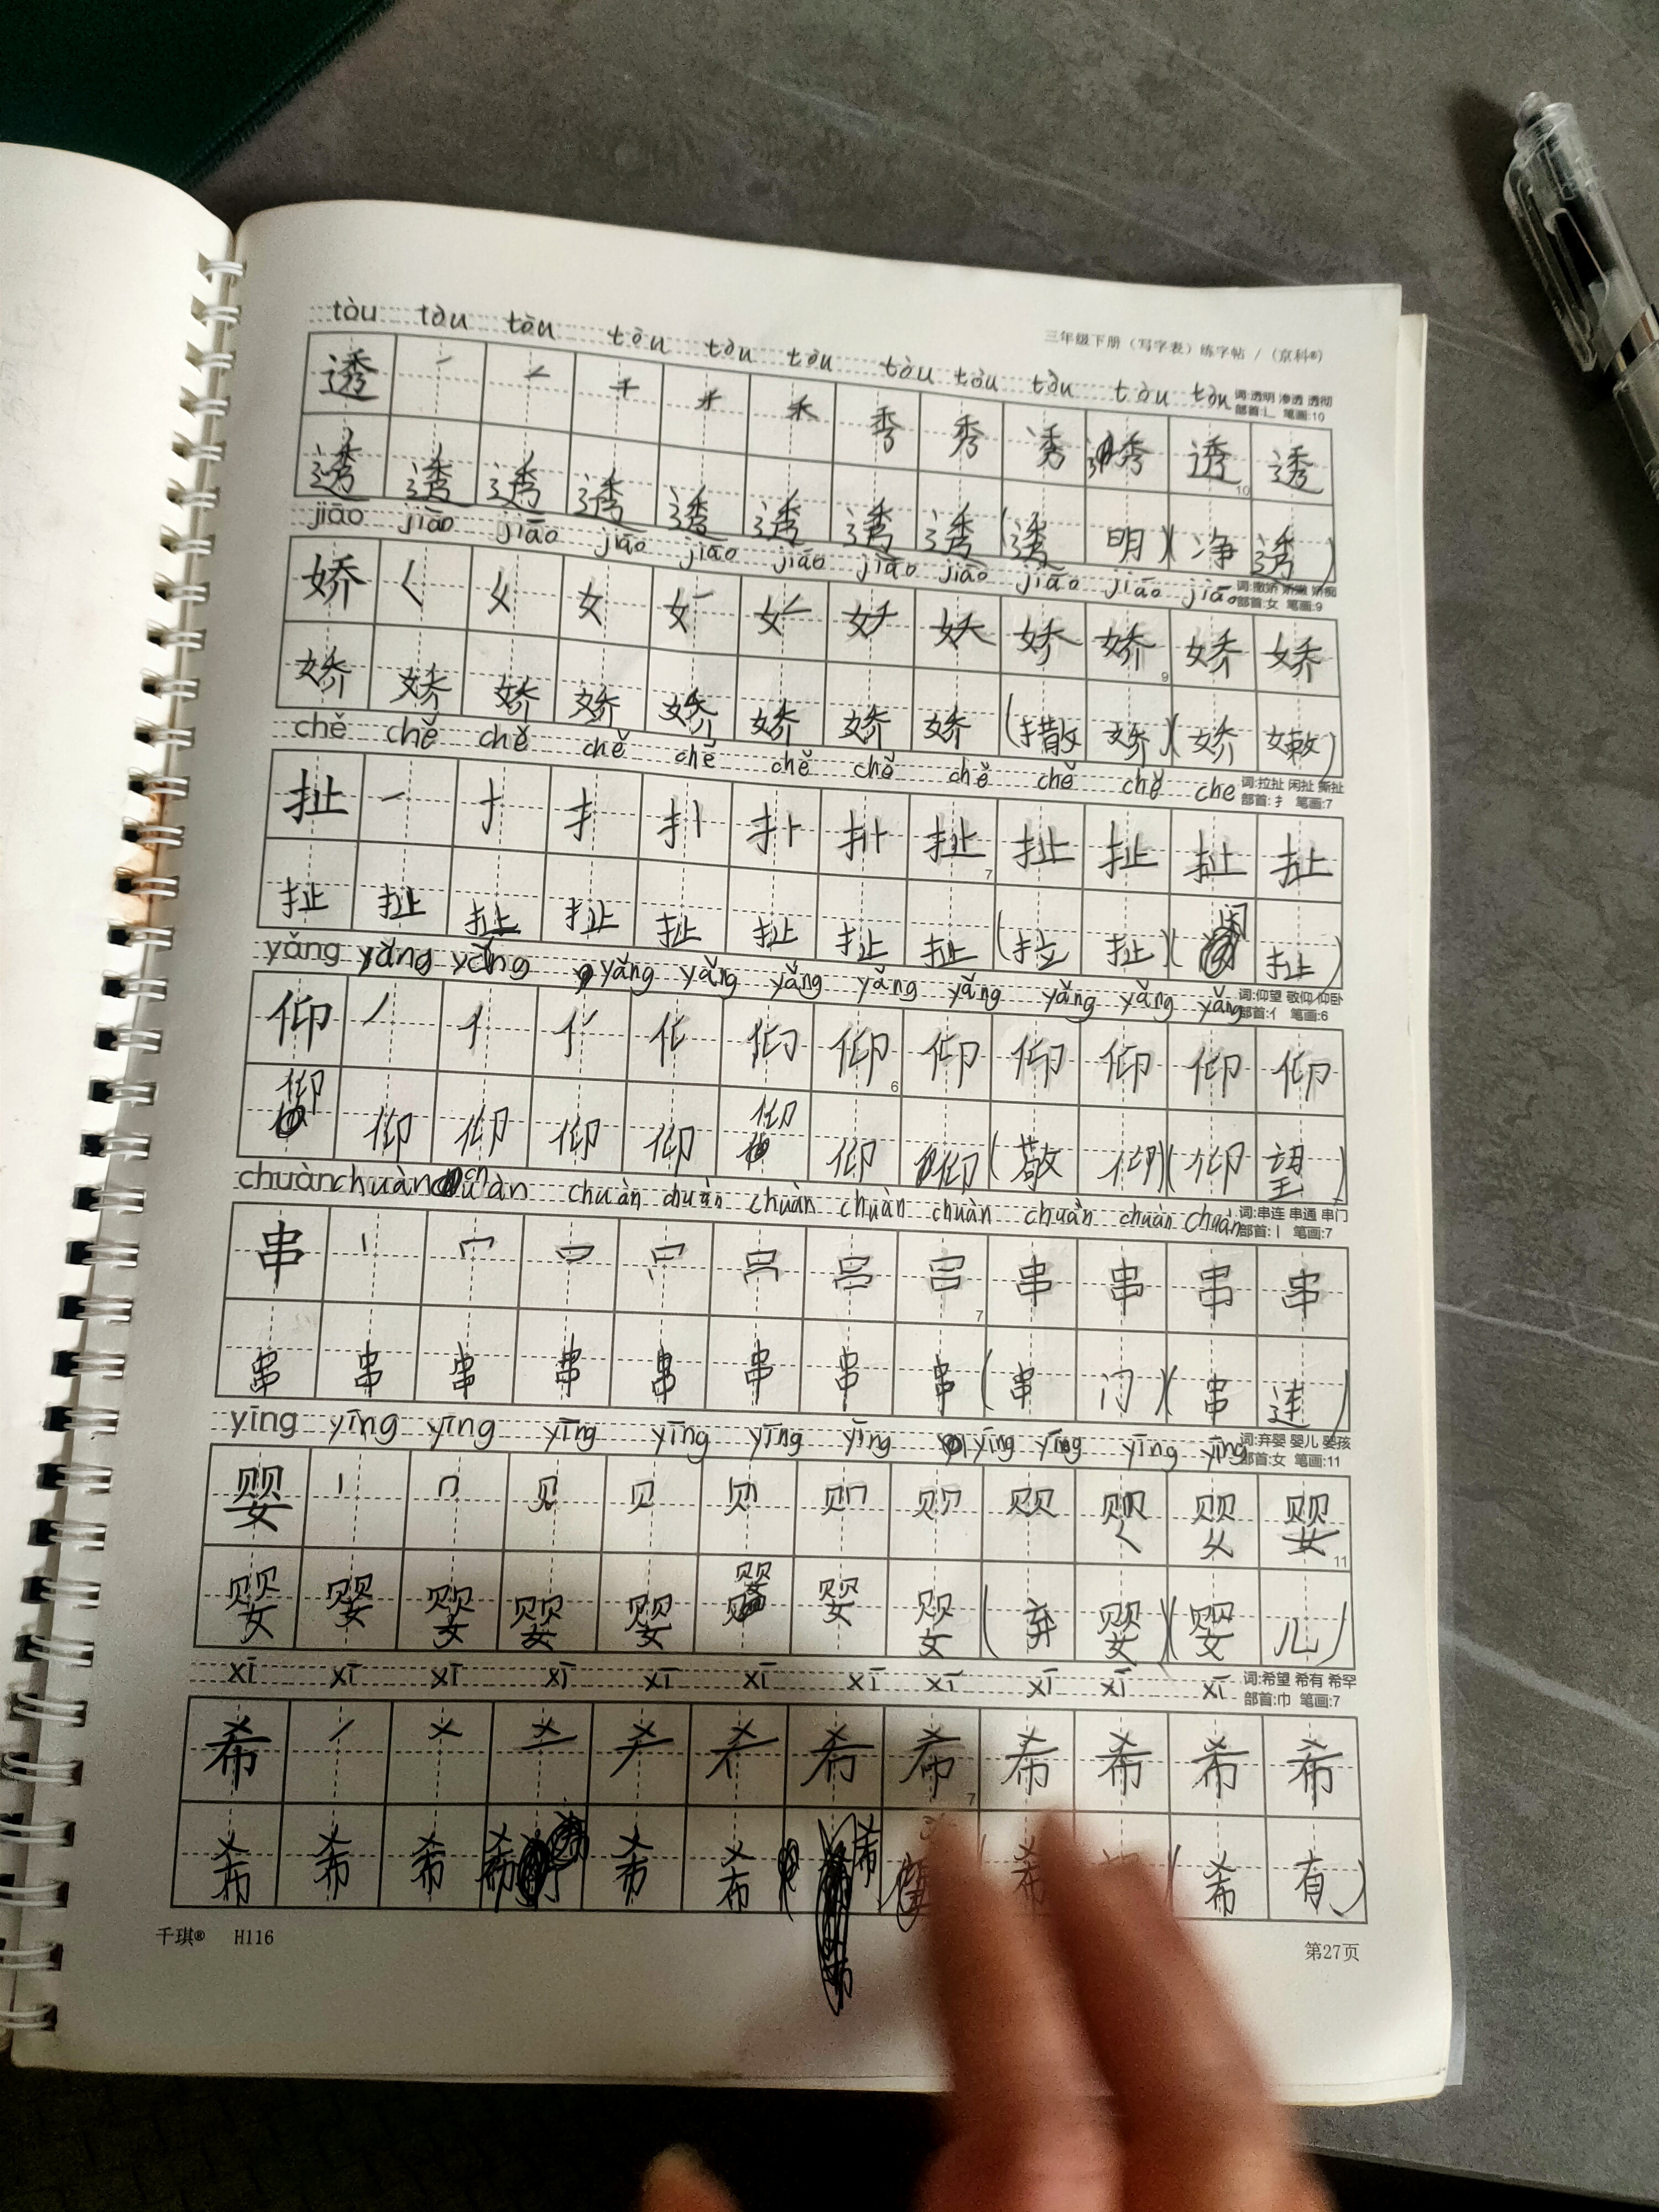 三年级下册（写字表）练字帖 /（京科®）
tòu tòu tòu tòu tòu tòu tòu tòu tòu tòu tòu
词:透明 渗透 透彻
部首:辶 笔画:10
透 一 二 千 禾 禾 秀 秀 透 透 透
10
透 透 透 透 透 透 透 透 (透 明)(净 透)
jiāo jiāo jiāo jiāo jiāo jiāo jiāo jiāo jiāo jiāo jiāo
词:撒娇 娇嫩 娇痴
部首:女 笔画:9
娇 𡿨 女 女 女 女 妖 娇 娇 娇
9
娇 娇 娇 娇 娇 娇 娇 娇 (撒 娇)(娇 嫩)
chě chě chě chě chě chě chě chě chě chě che
词:拉扯 闲扯 撕扯
部首:扌 笔画:7
扯 一 扌 扌 扯 扯 扯 扯 扯
7
扯 扯 扯 扯 扯 扯 扯 扯 (拉 扯)(闲 扯)
yǎng yǎng yǎng yǎng yǎng yǎng yǎng yǎng yǎng yǎng yǎng
词:仰望 敬仰 仰卧
部首:亻 笔画:6
仰 丿 亻 仰 仰 仰 仰 仰 仰
6
仰 仰 仰 仰 仰 仰 仰 仰 (敬 仰)(仰 望)
chuàn chuàn chuàn chuàn chuàn chuàn chuàn chuàn chuàn chuàn chuàn
词:串连 串通 串门
部首:丨 笔画:7
串 丨 冖 口 吕 吕 串 串 串 串
7
串 串 串 串 串 串 串 串 (串 门)(串 连)
yīng yīng yīng yīng yīng yīng yīng yīng yīng yīng yīng
词:弃婴 婴儿 婴孩
部首:女 笔画:11
婴 丨 冂 贝 贝 贝 贝 贝 贝贝 婴
11
婴 婴 婴 婴 婴 婴 婴 婴 (弃 婴)(婴 儿)
xī xī xī xī xī xī xī xī xī xī xī
词:希望 希有 希罕
部首:巾 笔画:7
希 丿 乂 希 希 希 希 希 希
7
希 希 希 希 希 希 希 希 (希 有)
千琪® H116
第27页